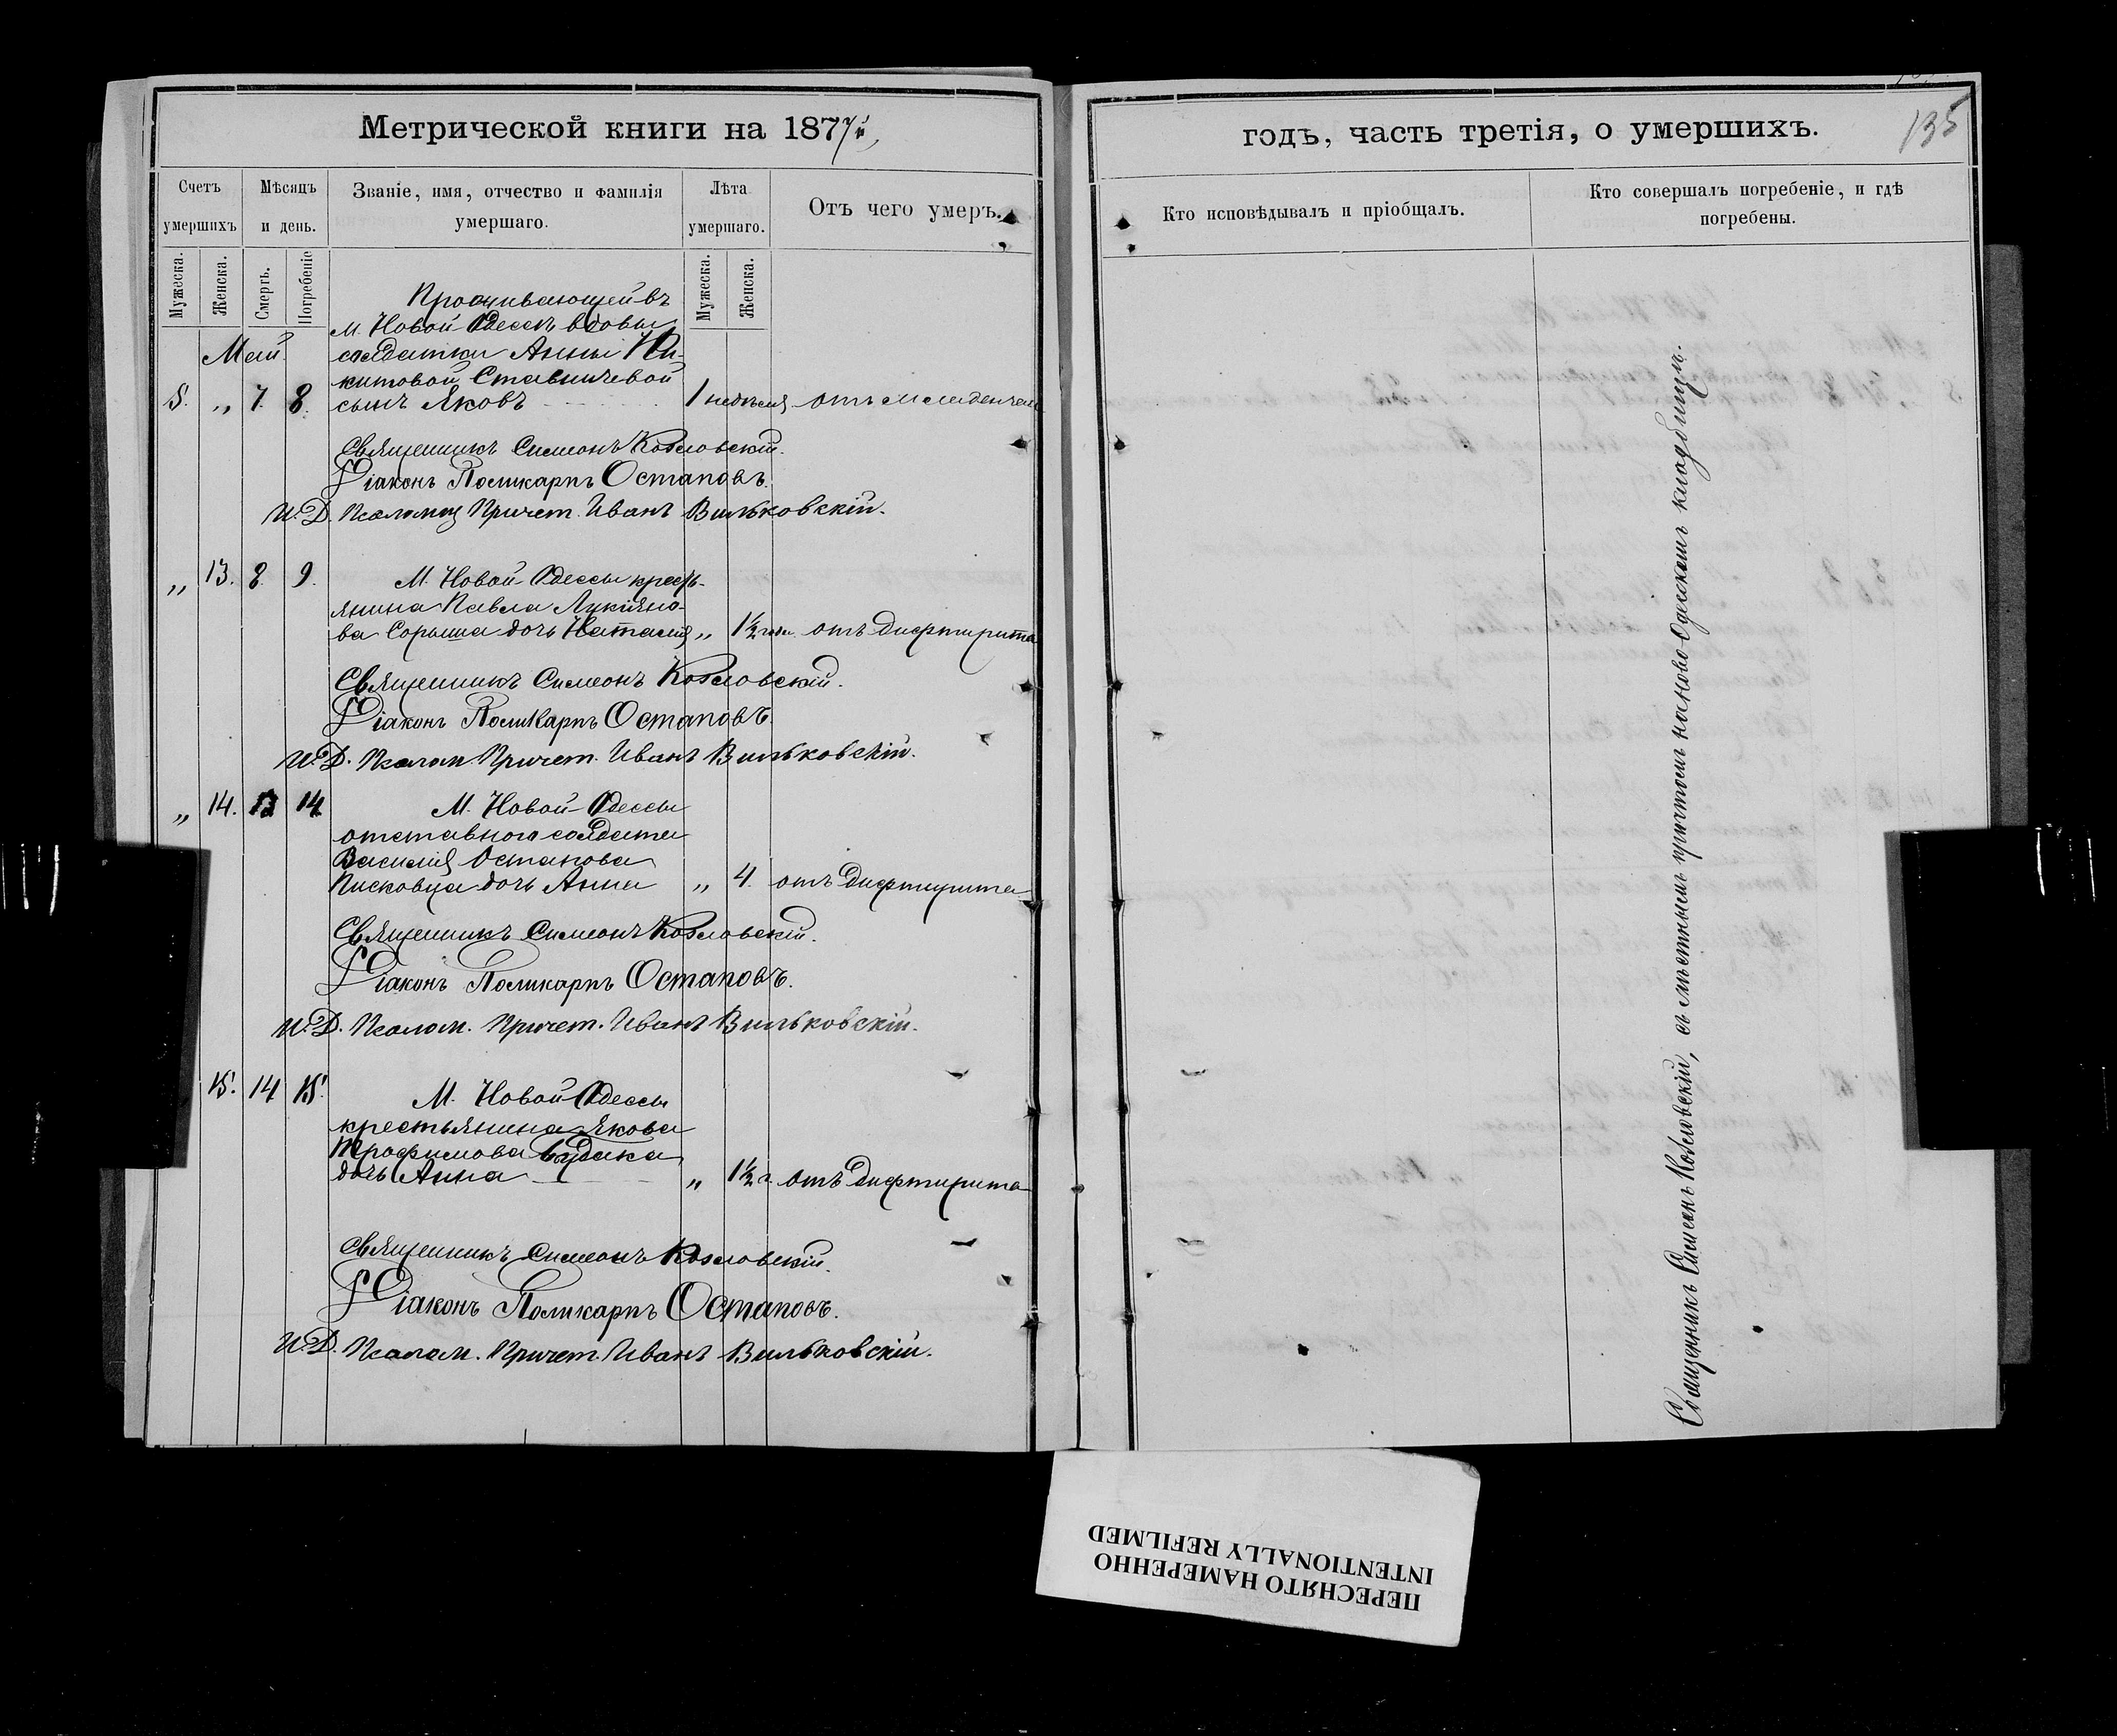 Метрической книги на 1877й
Счетъ умершихъ
Мѣсяцъ и день.
Званіе, имя, отчество и фамилія умершаго.
Лѣта умершаго.
Отъ чего умеръ.
Мужеска.
Женска.
Смерть.
Погребеніе
Мужеска.
Женска.
Май
Проживающей въ
М. Новой Одессѣ вдовы
солдатки Анны Ни-
китовой Ставничевой
8. „ 7. 8. сынъ Яковъ 1 недѣля отъ младенчес
Священникъ Симеонъ Козловскій.
Діаконъ Поликарпъ Остаповъ.
И. Д. Псаломщ Причет. Иванъ Вильковскій.
„ 13. 8. 9. М. Новой Одессы кресть-
янина Павла Лукіяно-
ва дочь Наталія „ 1½ года отъ дифтирита
Священникъ Симеонъ Козловскій.
Діаконъ Поликарпъ Остаповъ.
И. Д. Псалом. Причет. Иванъ Вильковскій.
„ 14. 14 М. Новой Одессы
отставного солдата
Василія Остапова
Писковца дочь Анна „ 4. отъ дифтирита
Священникъ Симеонъ Козловскій.
Діаконъ Поликарпъ Остаповъ.
И. Д. Псалом. Причет. Иванъ Вильковскій.
15. 14 15. М. Новой Одессы
крестьянина Якова
Трофимова Будака
дочь Анна „ 1½ г. отъ дифтирита
Священникъ Симеонъ Козловскій.
Діаконъ Поликарпъ Остаповъ.
И. Д. Псалом. Причет. Иванъ Вильковскій.
годъ, часть третія, о умершихъ.
135
Кто исповѣдывалъ и пріобщалъ.
Кто совершалъ погребеніе, и гдѣ погребены.
Священникъ Симеонъ Козловскій, съ мѣстнымъ причтомъ на ново-Одесскомъ кладбищѣ.
ПЕРЕСНЯТО НАМЕРЕННО
INTENTIONALLY REFILMED